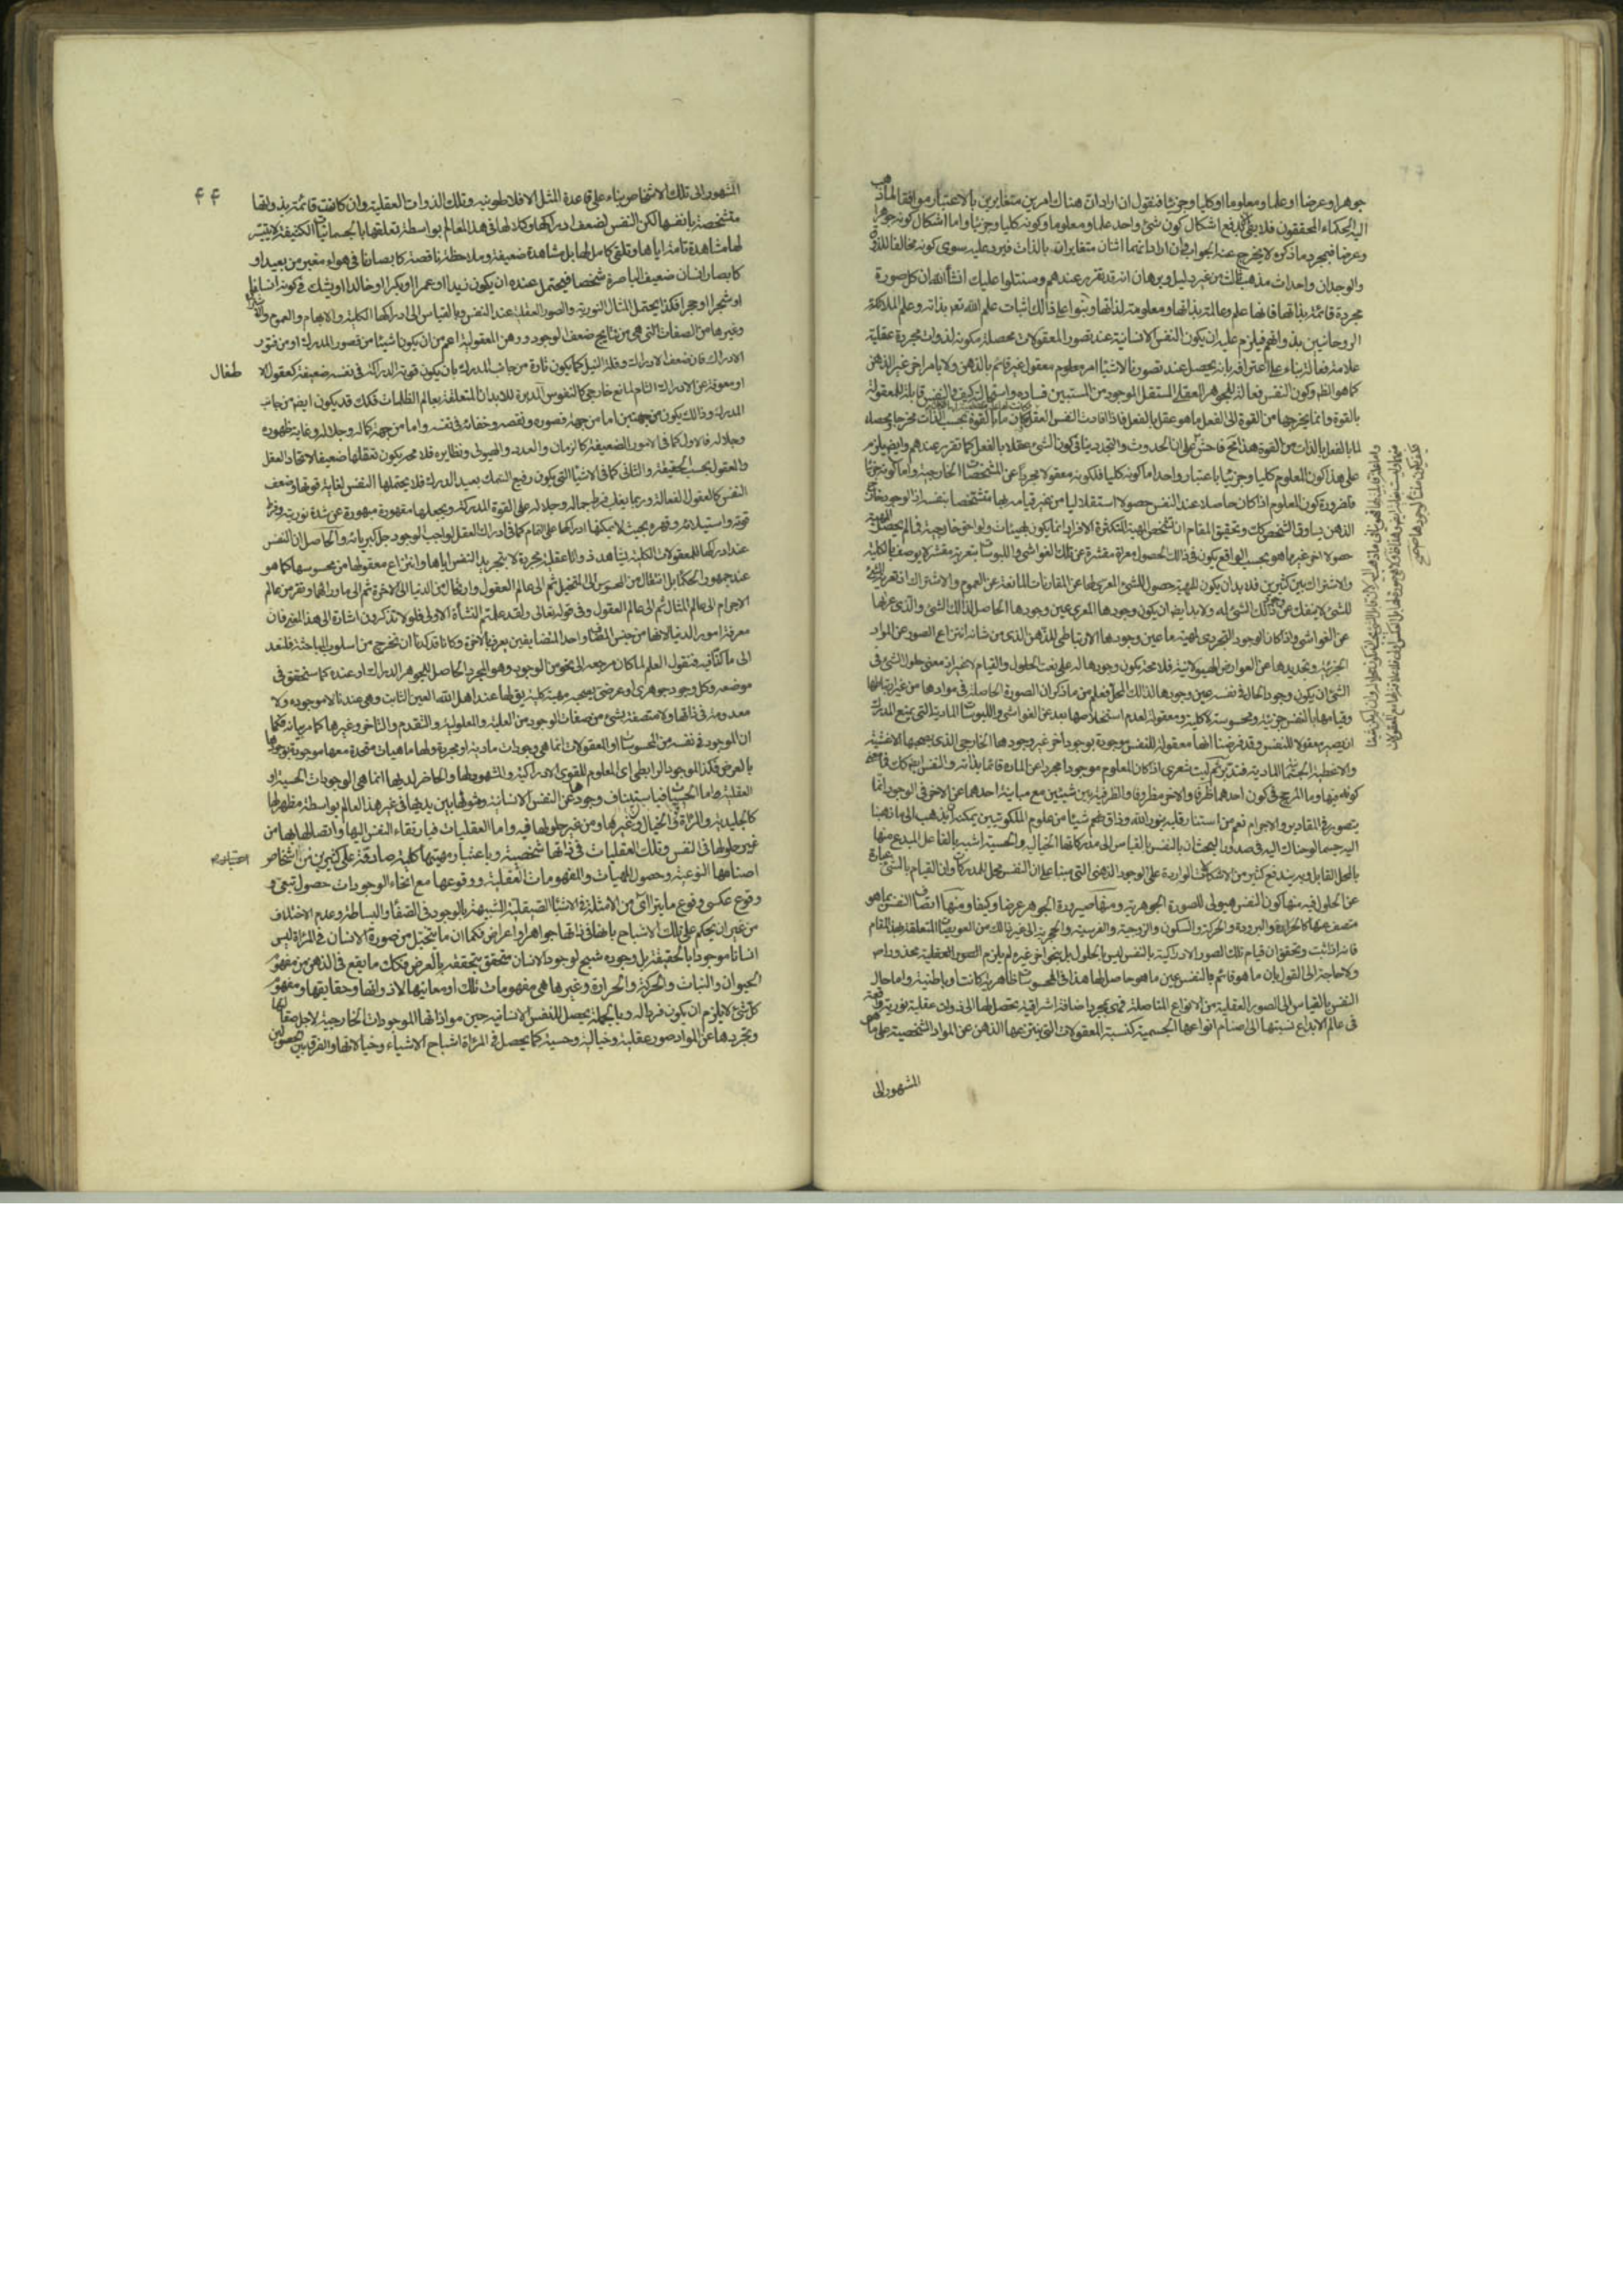 جوهرا وعرضا او علما ومعلوما او كليا وجزئيا فنقول ان اراد ان هناك امرين متغايرين بالاعتبار موافقا لما ذهب
اليه الحكماء المحققون فلا يفى بدفع اشكال كون شئ واحد علما ومعلوما وكونه كليا وجزئيا واما اشكال كونه جوهرا
وعرضا فبمجرد ما ذكره لا يخرج عنه الجواب وان اراد انهما اثنان متغايران بالذات فيرد عليه سوى كونه مخالفا للذوق
والوجدان واحداث مذهب ثالث من غير دليل وبرهان انه قد تقرر عندهم وسنتلوا عليك انشأ الله ان كل صورة
مجردة قائمة بذاتها فانها علم وعالمة بذاتها ومعلومة لذاتها وبنوا على ذالك اثبات علم الله تعم بذاته وعلم الملائكة
الروحانيين بذواتهم فيلزم عليه ان يكون النفس الانسانية عند تصور المعقولات محصلة مكونة لذوات مجردة عقلية
علامة فعالة بناء على اعترافه بانه يحصل عند تصورنا الاشيا امر معلوم معقول غير قائم بالذهن ولا بامر اخر غير الذهن
كما هو الظ وكون النفس فعالة للجوهر العقلى المستقل الوجود من المستبين فساده واستحالته كيف والنفس قابلة للمعقولة
بالقوة وانما يخرجها من القوة الى الفعل ما هو عقل بالفعل فاذا افادت النفس العقل كان ما بالقوة بحسب الذات مخرجا ومحصلا
لما بالفعل بالذات من القوة هذا مح فاحش على ان الحدوث والتجدد ينافى كون الشئ عقلا بالفعل كما تقرر عندهم وايضا يلزم
على هذا كون المعلوم كليا وجزئيا باعتبار واحد اما كونه كليا فلكونه معقولا مجردا عن المشخصات الخارجية واما كونه جزئيا
فلضرورة كون المعلوم اذا كان حاصلا عند النفس حصولا استقلاليا من غير قيامه بها متشخصا بنفسه اذ الوجود خارج
الذهن يساوق التشخص كك وتحقيق المقام ان تشخص المهية المتكثرة الافراد انما يكون بهيئات ولواحق خارجية فما لم يحصل المهية
حصولا اخر غير ما هو بحسب الواقع يكون فى ذالك الحصول معراة مقشرة عن تلك الغواشى واللبوسات بتعرية مقشر لا يوصف بالكلية
والاشتراك بين كثيرين فلا بد ان يكون للمهية حصول للشئ المعرى لها عن المقارنات المانعة عن العموم والاشتراك اذ تعرية الشئ
للشئ لا ينفك عن وجود ذلك الشئ له ولا بد ايضا ان يكون وجودها المعرى عين وجودها الحاصل لذالك الشئ والذى عراها
عن الغواشى واذا كان الوجود التجردى لمهية ما عين وجودها الارتباطى للذهن الذى من شانه انتزاع الصور عن المواد
الجزئية وتجديدها عن العوارض الهيولانية فلا محة يكون وجودها له على نعت الحلول والقيام لا غير اذ معنى حلول الشئ فى
الشئ ان يكون وجود الحال فى نفسه عين وجودها لذالك المحل فعلم من ما ذكر ان الصورة الحاصلة فى موادها من غير ارتباطها
وقيامها بالنفس جزئية ومحسوسة لا كلية ومعقولة لعدم استخلاصها بعد عن الغواشى واللبوسات المادية التى يمنع المدرك
ان يصير معقولا للنفس وقد فرضنا انها معقولة للنفس موجودة بوجود اخر غير وجودها الخارجى الذى يصحبها الاغشية
والاغطية الجسمانية المادية فتدبر ثم ليت شعرى اذ كان المعلوم موجودا مجردا عن المادة قائما بذاته والنفس ايضا كك فما معنى
كونه فيها وما المرجح فى كون احدهما ظرفا والاخر مظروفا والظرفية بين شيئين مع مباينة احدهما عن الاخر فى الوجود انما
يتصور فى المقادير والاجرام نعم من استنار قلبه بنور الله وذاق طعم شيئا من علوم الملكوتيين يمكنه ان يذهب الى ما ذهبنا
اليه حيما لوحناك اليه فى صدر المبحث ان بالنفس بالقياس الى مدركاتها الخيالية والحسية اشبه بالفاعل المبدع منها
بالمحل القابل وبه يندفع كثير من الاشكالات الواردة على الوجود الذهنى التى مبناها على ان النفس محل للمدركات وان القيام بالشئ عبارة
عن الحلول فيه منها كون النفس هيولى للصورة الجوهرية ومنها صيرورة الجوهر عرضا وكيفا ومنها اتصاف النفس بما هو
متصف عنها كالحرارة والبرودة والحركة والسكون والزوجية والفرسية والحجرية الى غير ذالك من العويصات المتعلقة بهذا المقام
فانه اذا ثبت وتحقق ان قيام تلك الصور الادراكية بالنفس ليس بالحلول بل بنحو اخر غيره لم يلزم المحذور اصلا
ولا حاجة الى القول بان ما هو قائم بالنفس غير ما هو حاصل لها هذا فى المحسوسات ظاهرية كانت او باطنية واما حال
النفس بالقياس الى الصور العقلية من الانواع المتاصلة فهى بمجرد اضافة اشراقية تحصل لها الى ذوات عقلية نورية واقعة
فى عالم الابداع نسبتها الى اصنام انواعها الجسمية كنسبة المعقولات التى ينتزعها الذهن عن المواد الشخصية على ما هو
المشهور الى
۴۴
المشهور الى تلك الاشخاص بناء على قاعدة المثل الافلاطونية وتلك الذوات العقلية وان كانت قائمة بذواتها
متشخصة بانفسها لكن النفس لضعف ادراكها وكلالها فى هذا العالم بواسطة تعلقها بالجسمانيات الكثيفة لا يتيسر
لها مشاهدة تامة اياها وتلقى كامل لها بل مشاهدة ضعيفة وملاحظة ناقصة كابصارنا فى هواء مغبر من بعيد او
كابصار انسان ضعيف الباصرة شخصا فيحتمل عنده ان يكون زيدا او عمرا او بكرا او خالدا او يشك فى كونه انسانا
او شجرا او حجرا فكذا يحتمل المثال النورية والصور العقلية عند النفس وبالقياس الى ادراكها الكلية والابهام والعموم والاشتراك
وغيرها من الصفات التى هى من نتايج ضعف الوجود ووهن المعقولية اعم من ان يكون ناشيئا من قصور المدرك او من فتور
الادراك فان ضعف الادراك وقلة النيل كما يكون تارة من جانب المدرك بان يكون قوته الدراكة فى نفسه ضعيفة كعقول الا
طفال
او معوقة عن الادراك التام لمانع خارجى كالنفوس المدبرة للابدان المتعلقة بعالم الظلمات فكك قد يكون ايضا من جانب
المدرك وذالك يكون من جهتين اما من جهة قصوره ونقصه وخفائه فى نفسه واما من جهة كماله وجلاله وغاية ظهوره
وجلاله فالاول كما فى الامور الضعيفة كالزمان والعدد والهيولى ونظايره فلا محة يكون تعقلها ضعيفا لاتحاد العقل
والعقول بحسب الحقيقة والثانى كما فى الاشيا التى يكون رفيع السمك بعيد الدرك فلا يحتملها النفس لغاية قوتها وضعف
النفس كالعقول الفعالة وربما يغلب فرط جماله وجلاله على القوة المدركة ويجعلها مقهورة مبهورة عن شدة نوريته وفرط
قوته واستيلائه وقهره بحيث لا يمكنها ادراكها على التمام كما فى ادراك العقل لواجب الوجود جل كبريائه والحاصل ان النفس
عند ادراكها للمعقولات الكلية يشاهد ذواتا عقلية مجردة لا بتجريد النفس اياها وانتزاع معقولها من محسوسها كما هو
عند جمهور الحكما بل انتقال من المحسوس الى المتخيل ثم الى عالم العقول وارتحال من الدنيا الى الاخرة ثم الى ما ورائهما وسفر من عالم
الاجرام الى عالم المثال ثم الى عالم العقول وفى قوله تعالى ولقد علمتم النشأة الاولى فلولا تذكرون اشارة الى هذا المعنى فان
معرفة امور الدنيا لانها من جنس المضاف واحد المتضايفين يعرف بالاخر وكانا قد كدنا ان نخرج من اسلوب المباحثة فلنعد
الى ما كنا فيه فنقول العلم لما كان مرجعه الى نحو من الوجود وهو المجرد الحاصل للجوهر الدراك او عنده كما سنحقق فى
موضعه وكل وجود جوهرى او عرضى يصحبه مهية كلية يق لها عند اهل الله العين الثابت وهى عندنا لا موجوده ولا
معدومة فى ذاتها ولا متصفة بشئ من صفات الوجود من العلية والمعلولية والتقدم والتاخر وغيرها كما مر بيانه فكما
ان الموجود فى نفسه من المحسوسات او العقولات انما هى وجودات مادية او مجردة ولها ماهيات متحدة معها موجودة بوجودها
بالعرض فكذا الموجود الرابطى اى المعلوم للقوى الادراكية والمشهود لها والحاضر لديها انما هى الوجودات الحسية او
العقلية اما الحسيات فباستيناف وجودها عن النفس الانسانية ومثولها بين يديها فى غير هذا العالم بواسطة مظهر لها
كالجليدية والمرآة والخيال وغيرها ومن غير حلولها فيه واما العقليات فبارتقاء النفس اليها واتصالها بها من
غير حلولها فى النفس وتلك العقليات فى ذاتها شخصية وباعتبار مهيتها كلية صادقة على كثيرين من اشخاص
اصنامها النوعية وحصول المهيات والمفهومات العقلية ووقوعها مع انحاء الوجودات حصول تبعى و
وقوع عكسى وقوع ما يترااى من الامثلة فى الاشيا الصيقلية الشبيهة بالوجود فى الصفا والبساطة وعدم الاختلاف
من غير ان يحكم على تلك الاشباح بانها فى ذاتها جواهر او اعراض فكما ان ما يتخيل من صورة الانسان فى المرآة ليس
انسانا موجودا بالحقيقة بل وجوده شبح لوجود الانسان متحقق بتحققه بالعرض فكك ما يقع فى الذهن من مفهوم
الحيوان والنبات والحركة والحرارة وغيرها هى مفهومات تلك او معانيها لا ذواتها وحقايقها ومفهوم
كل شئ لا يلزم ان يكون فردا له وبالجملة يحصل للنفس الانسانية حين موافاتها الموجودات الخارجية لاجل صفائها
وتجردها عن المواد صور عقلية وخيالية وحسية كما يحصل فى المرآة اشباح الاشياء وخيالاتها والفرق بين الحصولين